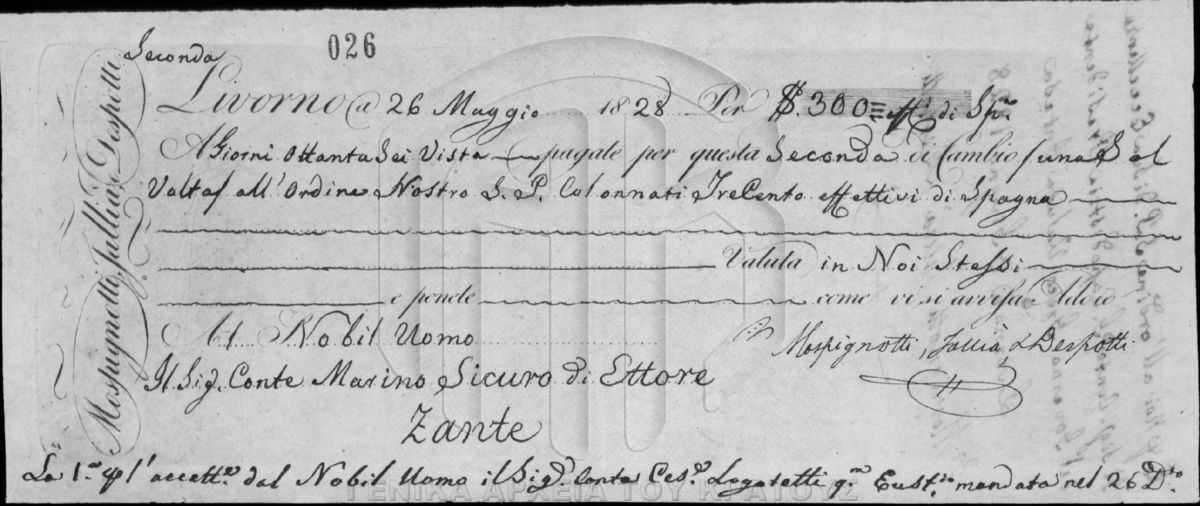 Seconda
026
Livorno a 26 Maggio 1828 Per $. 300 eff.i di Sp.a
A Giorni Ottanta Sei Vista pagate per questa Seconda di Cambio (una Sol
Volta) all'Ordine Nostro S. P. Colonnati TreCento effettivi di Spagna
Valuta in Noi Stessi
e ponete come vi si avvisa Addio
Al Nobil Uomo
Mospignotti, Jallià & Despotti
Il Sig. Conte Marino Sicuro di Ettore
Zante
La 1.a p l'accett.e dal Nobil Uomo il Sig.r Conte Ces.e Logotetti q.m Eust.o mandata nel 26 D.to
Mospignotti, Jallià & Despotti
ΓΕΝΙΚΑ ΑΡΧΕΙΑ ΤΟΥ ΚΡΑΤΟΥΣ